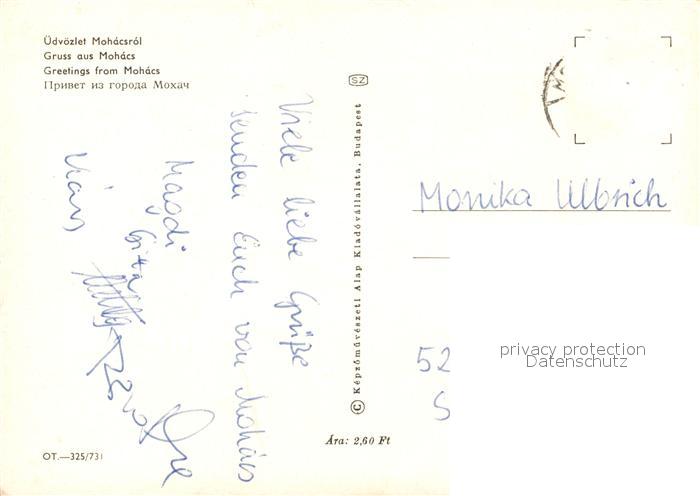 Üdvözlet Mohácsról
Gruss aus Mohács
Greetings from Mohács
Привет из города Мохач
Viele liebe Grüße
senden Euch von Mohács
Magdi
Gitta
OT.—325/731
SZ
© Képzőművészeti Alap Kiadóvállalata, Budapest
Ára: 2,60 Ft
Monika Ulbrich
52
S
privacy protection
Datenschutz